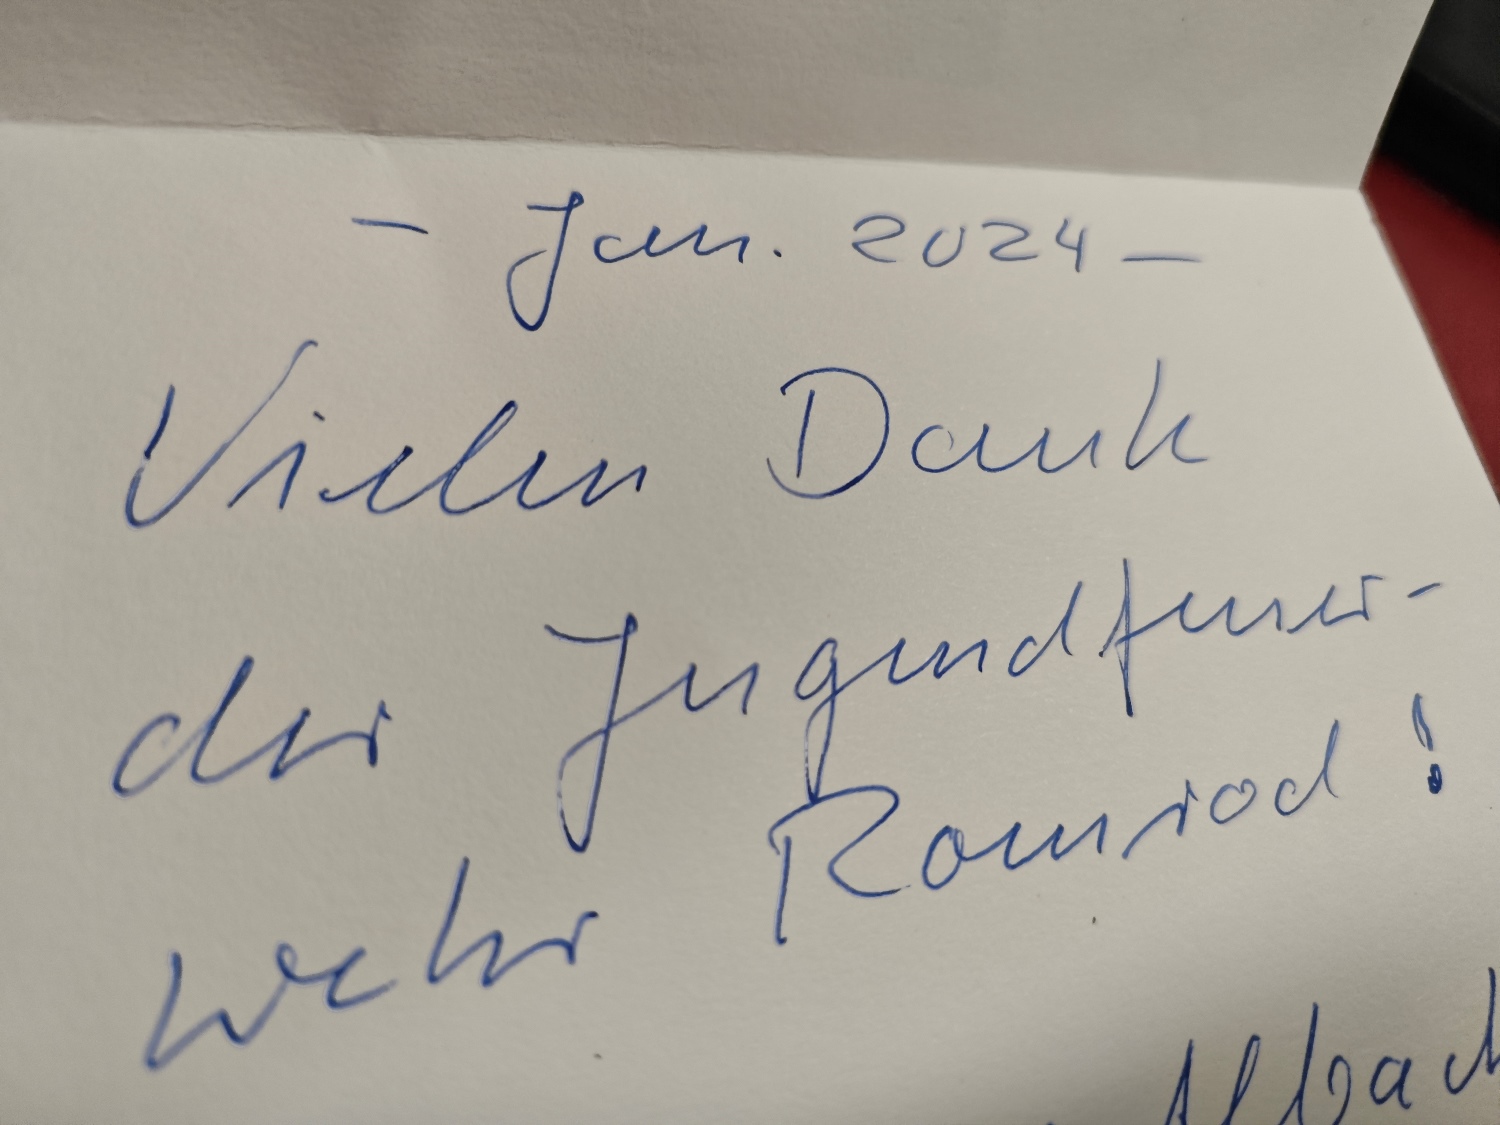 - Jan. 2024 -
Vielen Dank
der Jugendfeuer-
wehr Romrod!